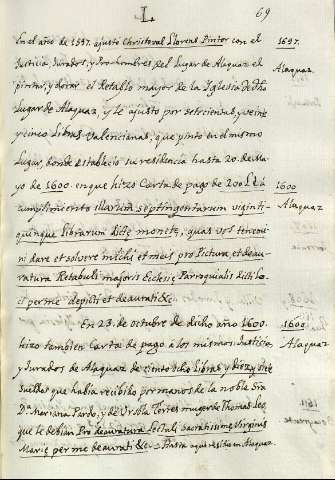 L
69
En el año de 1597. ajustó Christoval Llorens Pintor con el
1597.
Justicia, Jurados, y Pro-hombres del Lugar de Alaquaz el
Alaquaz.
pintar, y dorar el Retablo mayor de la Iglesia de dho
Lugar de Alaquaz, y le ajustó por setecientas, y veinte
y cinco Libras Valencianas; que pintó en el mismo
Lugar, donde estableció su residencia hasta 20. de Ma-
yo de 1600. en que hizo Carta de pago de 200 LL á
1600
cumplimiento illarum septingentarum viginti
Alaquaz
quinque librarum dictę monetę, quas vos tenemi-
ni dare et solvere michi et meis pro Pictura, et deau-
ratura Retabuli majoris Ecclesię Parroquialis dicti lo-
ci per me depicti et deaurati &c.
En 23. de Octubre de dicho año 1600.
1600.
hizo tambien Carta de pago a los mismos Justicia,
Alaquaz
y Jurados de Alaquaz de ciento ocho Libras, y diez, y seis
Sueldos que havia recibido por manos de la noble Sra
Da. Mariana Pardo, y de Ursola Torres muger de Thomas
que le debian Pro deauratura Lectuli sacratissimę Virginis
Marię per me deaurati &c. Hasta aqui residió en Alaquaz.